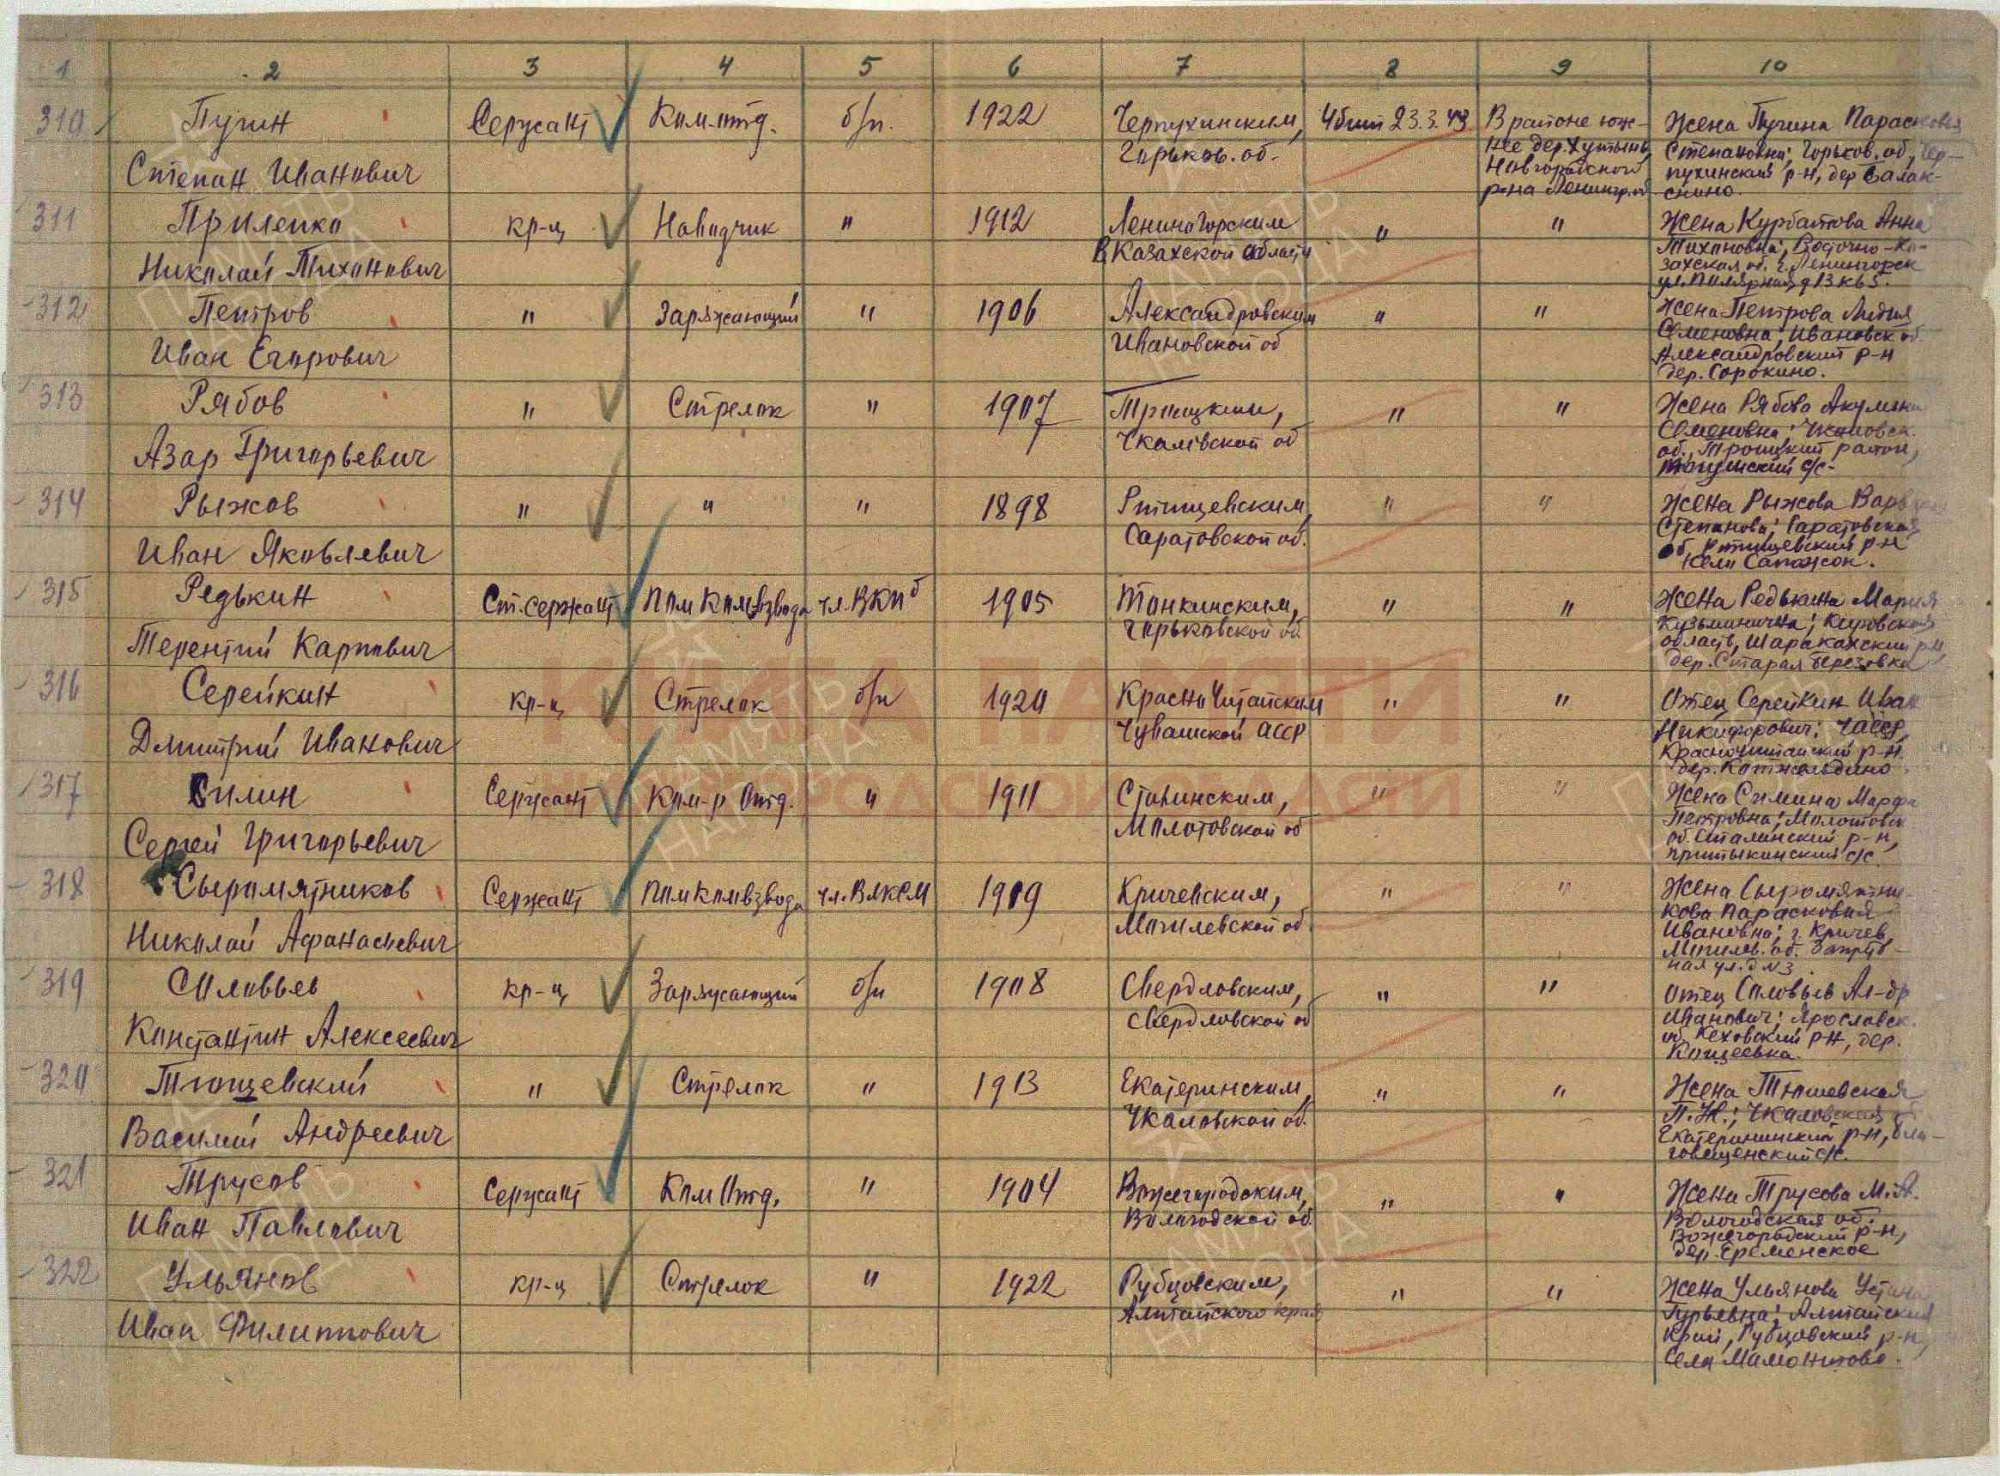 1 2 3 4 5 6 7 8 9 10
310 Пугин Сержант Ком-отд. б/п. 1922 Черпухинским, Убит 23.3.43 В районе юж- Жена Пугина Парасковья
Горьков. об. нее дер. Хутынь Степановна; Горьков. об, Чер-
Степан Иванович Новгородского пухинский р-н, дер
р-на Ленингр. об
311 Прилепко кр-ц Наводчик " 1912 Лениногорским " " Жена Курбатова Анна
В Казахской области Тихоновна; Восточно-Ка-
Николай Тихонович захская об. г. Лениногорск
ул. Полярная д 13 кв 5.
312 Петров " Заряжающий " 1906 Александровским " " Жена Петрова Лидия
Ивановской об Семеновна; Ивановск об
Иван Егорович Александровский р-н
дер. Сорокино.
313 Рябов " Стрелок " 1907 Троицким, " " Жена Рябова Акулина
Чкаловской об Семеновна; Чкаловск.
Азар Григорьевич об., Троицкий район,
с/с-
314 Рыжов " " " 1898 Ртищевским " " Жена Рыжова
Саратовской об. Степановна; Саратовская
Иван Яковлевич об, Ртищевский р-н
село Сапожок.
315 Редькин Ст. сержант Пом Ком взвода чл. ВКПб 1905 Тонкинским, " " Жена Редькина Мария
Горьковской об. Кузьминична; Кировская
Терентий Карпович область, Шаракахский р-н,
дер. Старая Березовка
316 Серейкин кр-ц Стрелок б/п 1920 КрасноЧитайским " " Отец Серейкин Иван
Чувашской АССР Никифорович; ЧАССР,
Дмитрий Иванович Красночитайский р-н.
дер.
317 Силин Сержант Ком-р Отд. " 1911 Сталинским, " " Жена Силина Марфа
Молотовской об Петровна; Молотовск
Сергей Григорьевич об. Сталинский р-н,
с/с.
318 Сыромятников Сержант Пом Ком взвода чл. ВЛКСМ 1919 Кричевским, " " Жена Сыромятни-
Могилевской об кова Парасковия
Николай Афанасьевич Ивановна; г. Кричев,
Могилев. об. Запруд-
ная ул. д №3.
319 Соловьев кр-ц Заряжающий б/п 1908 Свердловским, " " Отец Соловьев Ал-др
Свердловской об Иванович; Ярославск.
Константин Алексеевич об. р-н, дер.
Кощеевка.
320 Тющевский " Стрелок " 1913 Екатеринским, " " Жена Тюшевская
Чкаловской об. П.Ж.; Чкаловская об
Василий Андреевич Екатерининский р-н, Бла-
говещенский с/с.
321 Трусов Сержант Ком Отд. " 1904 Вожегородским, " " Жена Трусова М.А.
Вологодской об. Вологодская об.
Иван Павлович Вожегородский р-н,
дер. Еременское
322 Ульянов кр-ц Стрелок " 1922 Рубцовским, " " Жена Ульянова
Алтайского края Гурьевна; Алтайский
Иван Филиппович край, Рубцовский р-н,
село Мамонтово.
КНИГА ПАМЯТИ
НИЖЕГОРОДСКОЙ ОБЛАСТИ
ПАМЯТЬ
НАРОДА